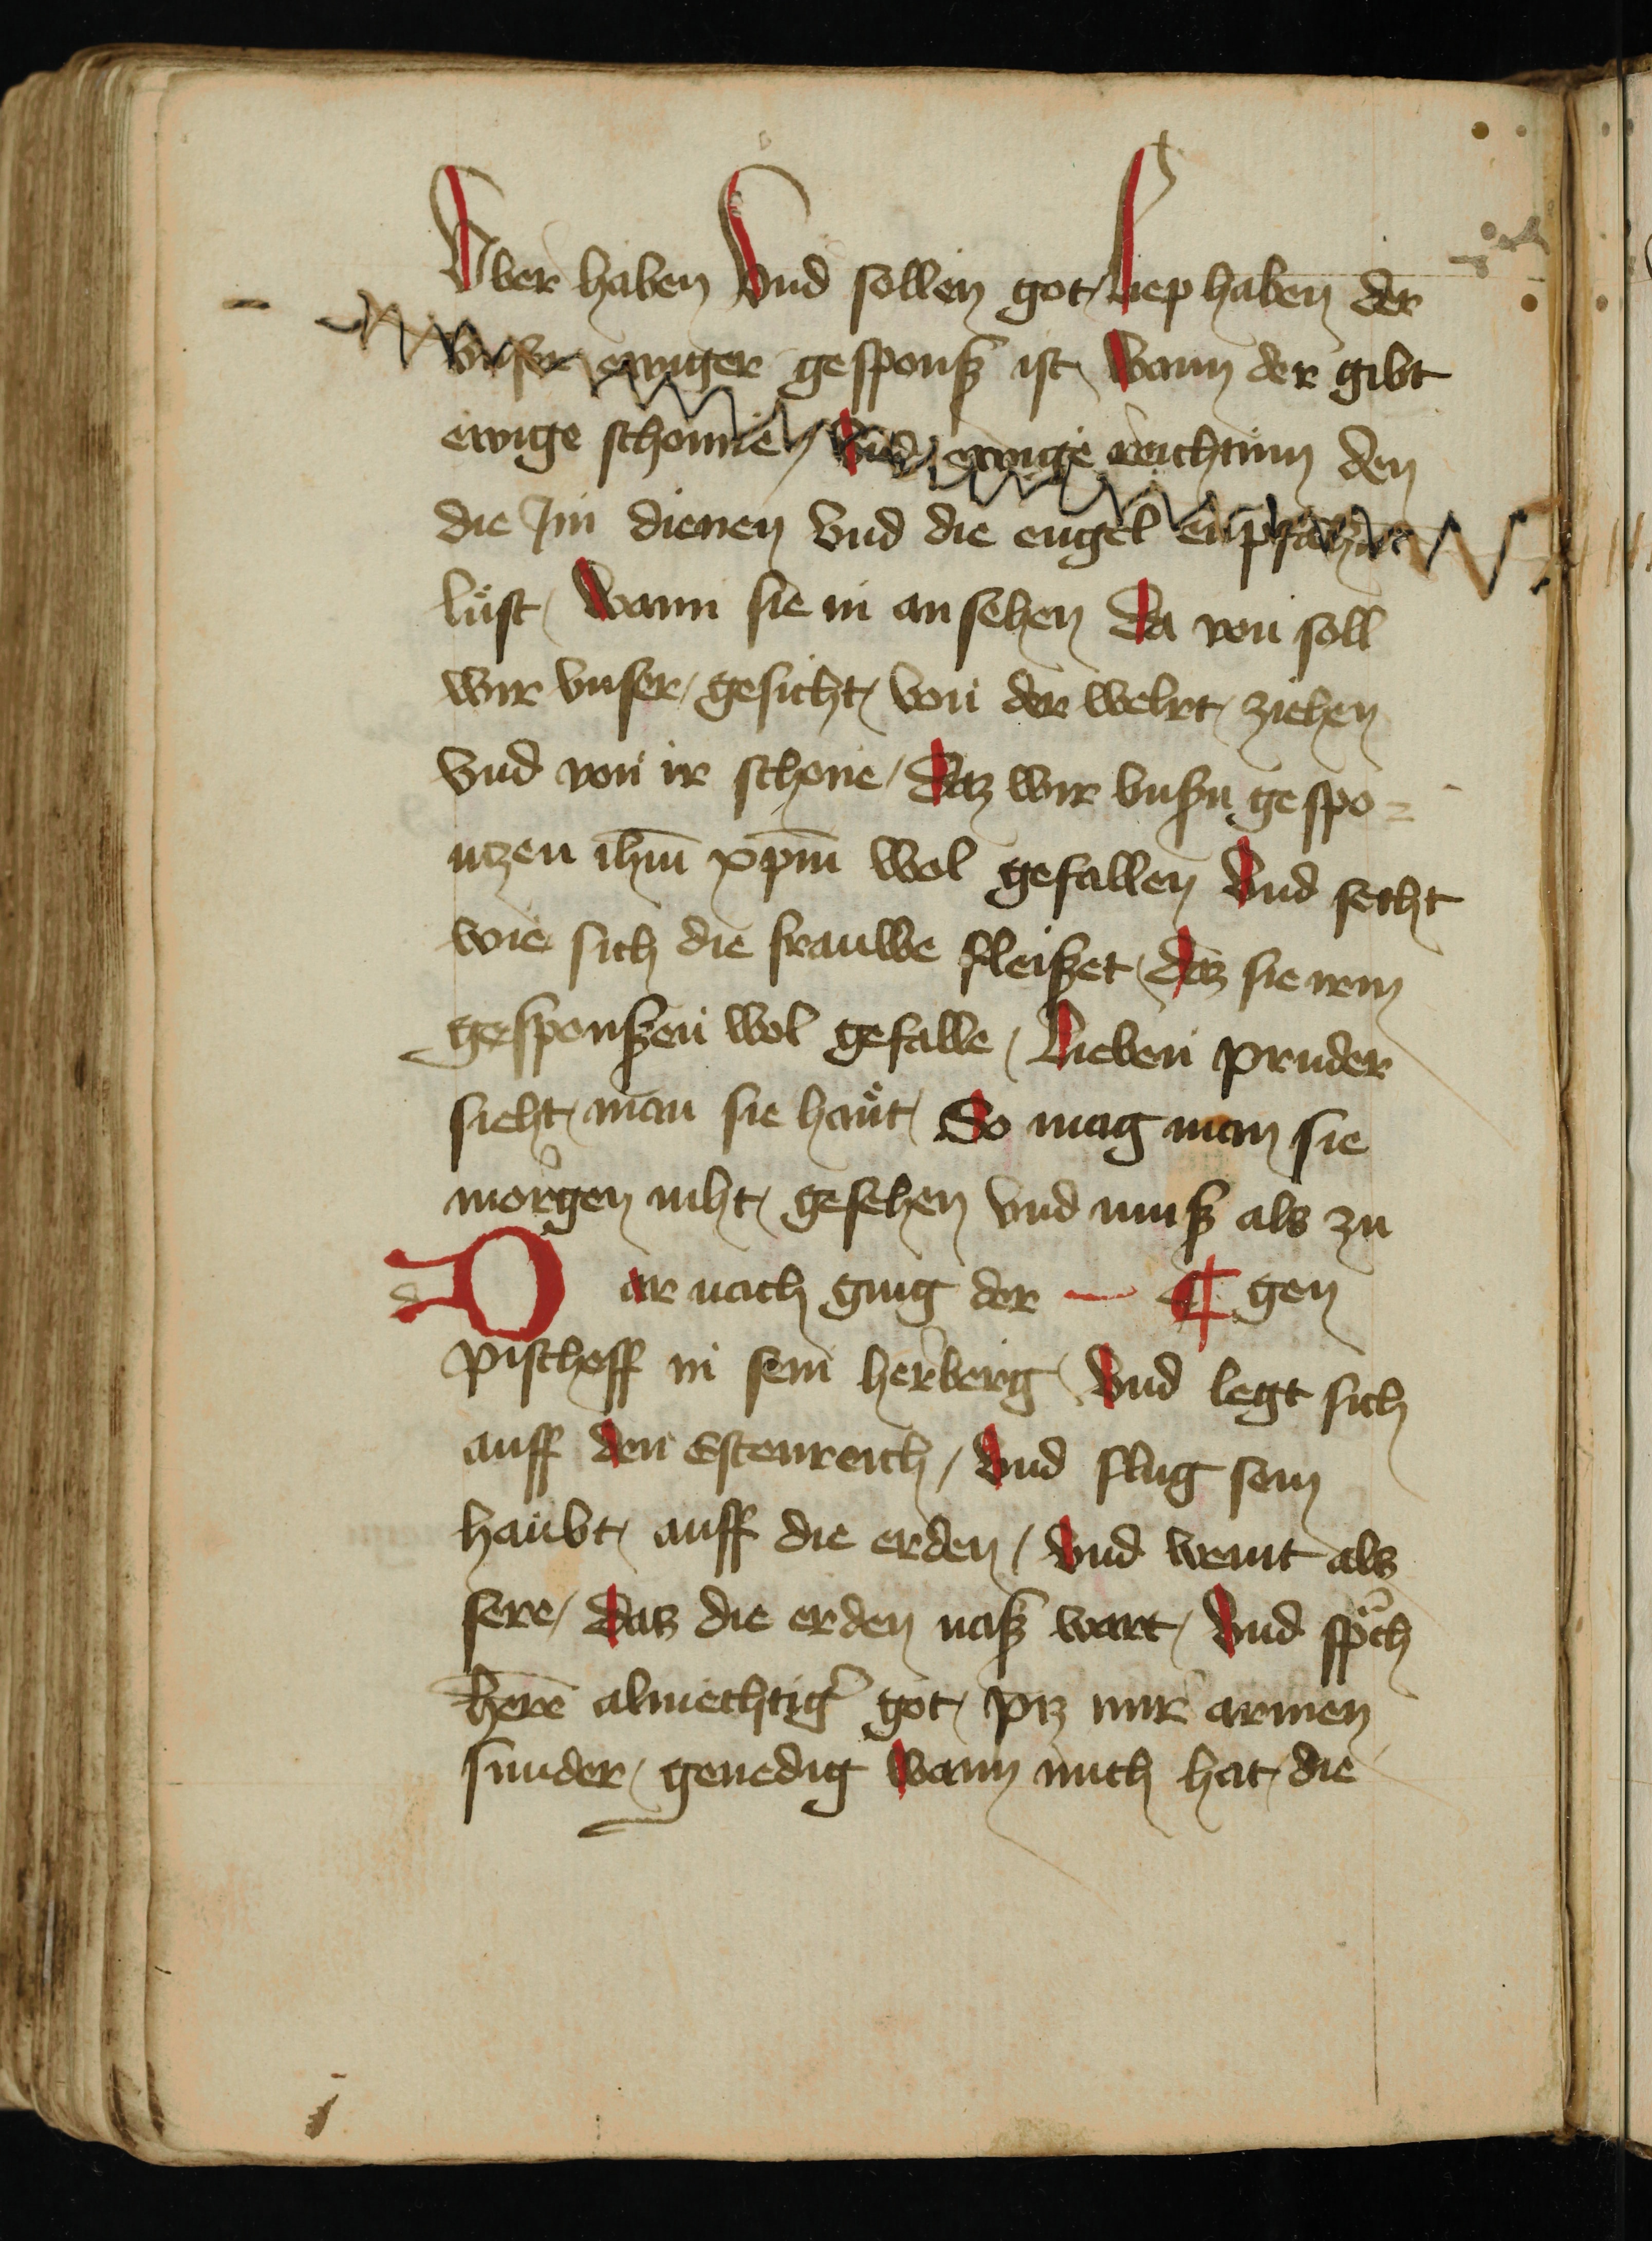 Vber haben Vnd sollen got / Liep haben der
vnser ewiger gesponß ist / Wann der gibt
ewige schonne / Vnd ewige reichtum den
die Jm dienen vnd die engel enpfahen
lüst / Wann sie in an sehen Da von soll
wir vnser / gesicht / von der welrt / ziehen
vnd von ir schone / Daz wir vnßn gespo=
ntzen ihm̄ xp̄m wol gefallen Vnd secht
wie sich die frauwe fleißet / Daz sie irem
gesponßen wol gefalle / Lieben pruder
sieht / man sie haüt / So mag man sie
morgen niht / gesehen vnd muß als zu
Dar nach ging der — ¶ gen
pischoff in sein herberig / Vnd legt sich
auff den Estenreich / Vnd slug sein
haubt / auff die erden / Vnd weint als
sere / Das die erden naß wart / Vnd sp̄ch
here almechtig̉ got / piz mir armen
sunder / genedig Wann mich hat / die